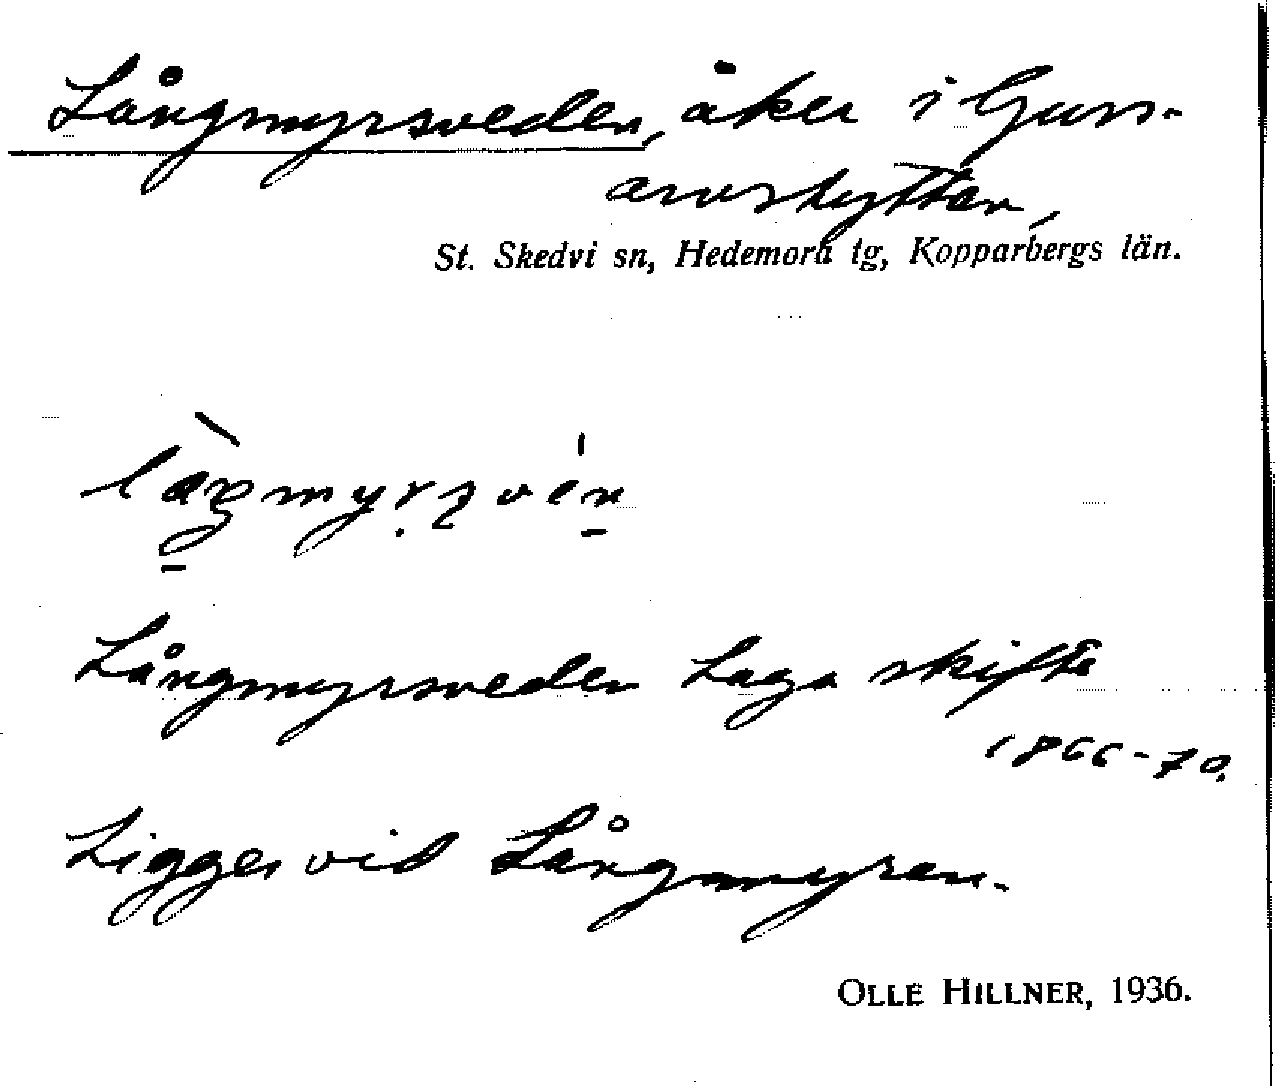 Långmyrsveden, åker i Gussarvshyttan,
St. Skedvi sn, Hedemora tg, Kopparbergs län.
Långmyrsveden Laga skifte
1866-70.
Ligger vid Långmyren.
OLLE HILLNER, 1936.